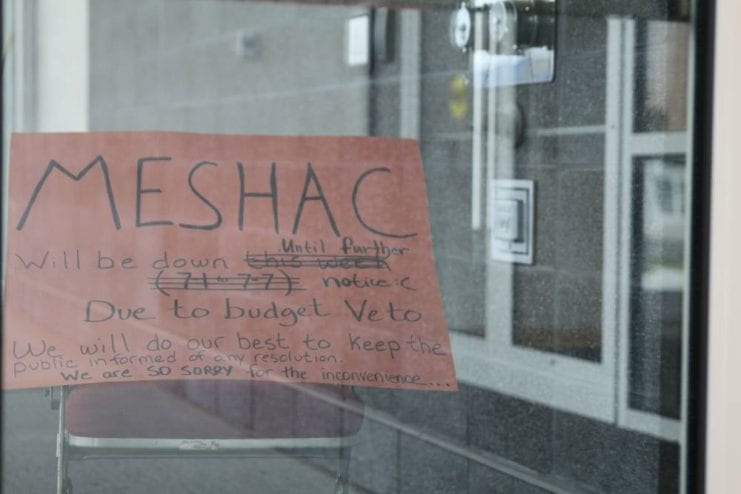 MESHAC
Until further
Will be down this week
(7-1 to 7-7) notice :(
Due to budget Veto
We will do our best to keep the
public informed of any resolution.
We are SO SORRY for the inconvenience....